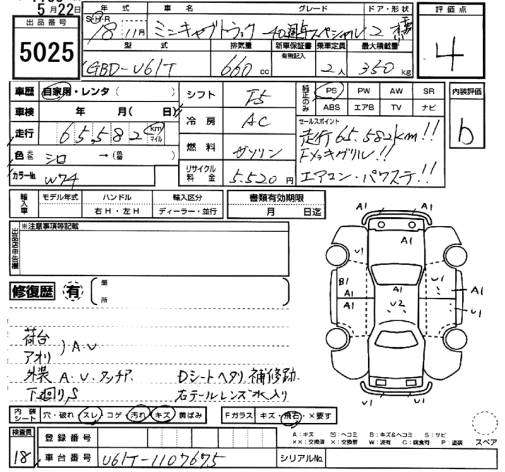 5月22日
出品番号
5025
S・H・R 年式 車名 グレード ドア・形状
18 11月 ミニキャブトラック 40周年スペシャル 2
型式 排気量 新車保証書 乗車定員 最大積載量
有無記入
GBD-U61T 660cc 2人 350kg
評価点
4
車歴 自家用・レンタ( )
車検 年 月(日)
走行 65,582 km マイル
色 元色 シロ →( 色)
カラーNo. W74
シフト F5
冷房 AC
燃料 ガソリン
リサイクル料金 5,520円
純正のみ PS PW AW SR
ABS エアB TV ナビ
セールスポイント
走行65.582km!!
Fメッキグリル!!
エアコン・パワステ!!
内装評価
b
輸入車 モデル年式 ハンドル 輸入区分
右H・左H ディーラー・並行
書類有効期限
月 日迄
※注意事項等記載
修復歴 有 箇所
荷台
アオリ )A.U
外装 A.U.タッチア
下廻りS
Dシートヘタリ、補修跡
右テールレンズ水入り
A1 U1 A1
A1
A1
B1 A1 A1 A1 U1
U2
A1
U1
内装シート 穴・破れ スレ コゲ 汚れ キズ 黄ばみ
Fガラス キズ・飛石・×要す
A:キズ 凹:ヘコミ B:キズ&ヘコミ S:サビ
スペア
検査員
18
登録番号
車台番号 U61T-1107675
シリアルNo.